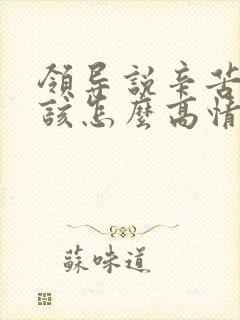 領导説辛苦
該怎麼高情
蘇味道